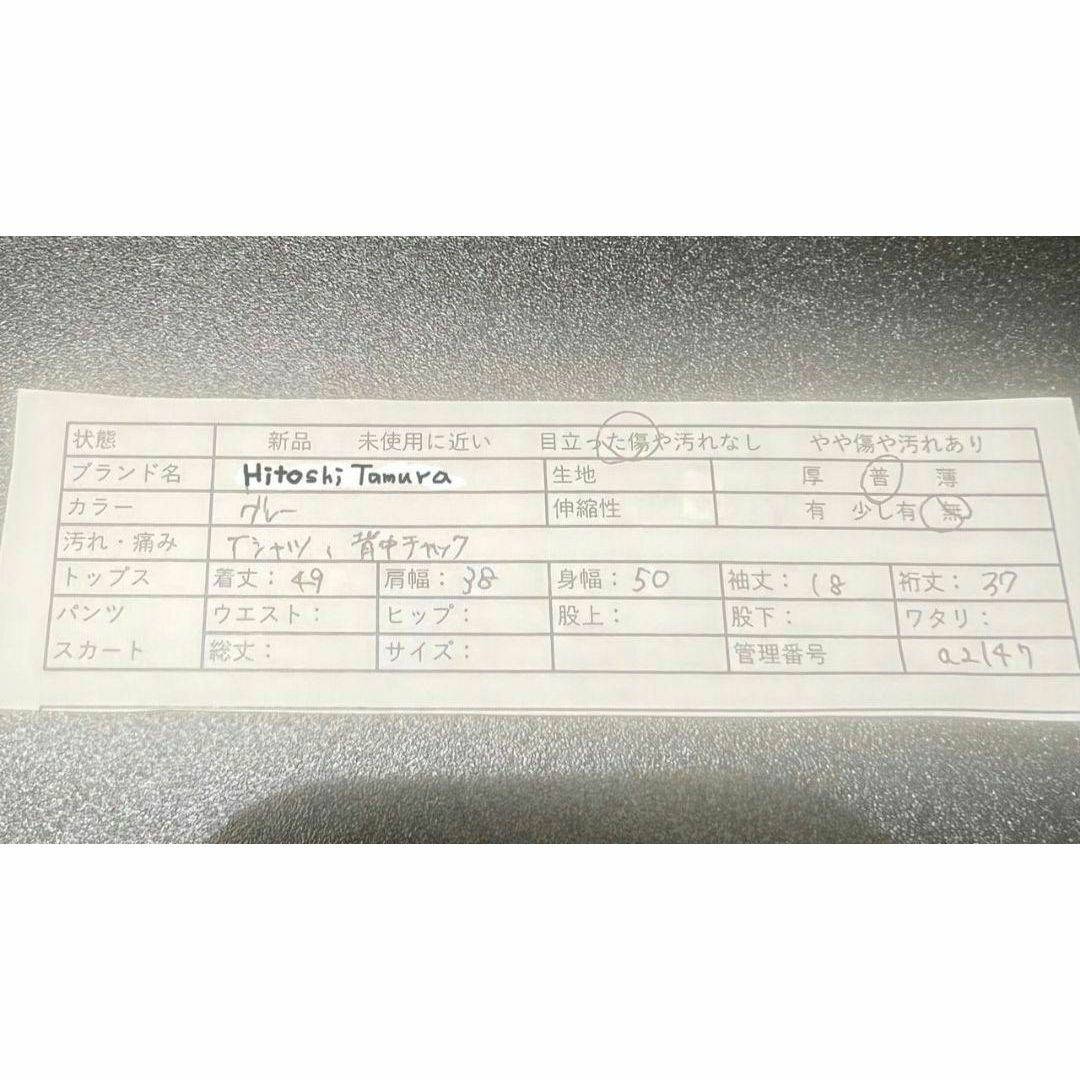 状態 新品 未使用に近い 目立った傷や汚れなし やや傷や汚れあり
ブランド名 Hitoshi Tamura 生地 厚 普 薄
カラー グレー 伸縮性 有 少し有 無
汚れ・痛み Tシャツ、背中チャック
トップス 着丈：49 肩幅：38 身幅：50 袖丈：18 裄丈：37
パンツ ウエスト： ヒップ： 股上： 股下： ワタリ：
スカート 総丈： サイズ： 管理番号 a2147